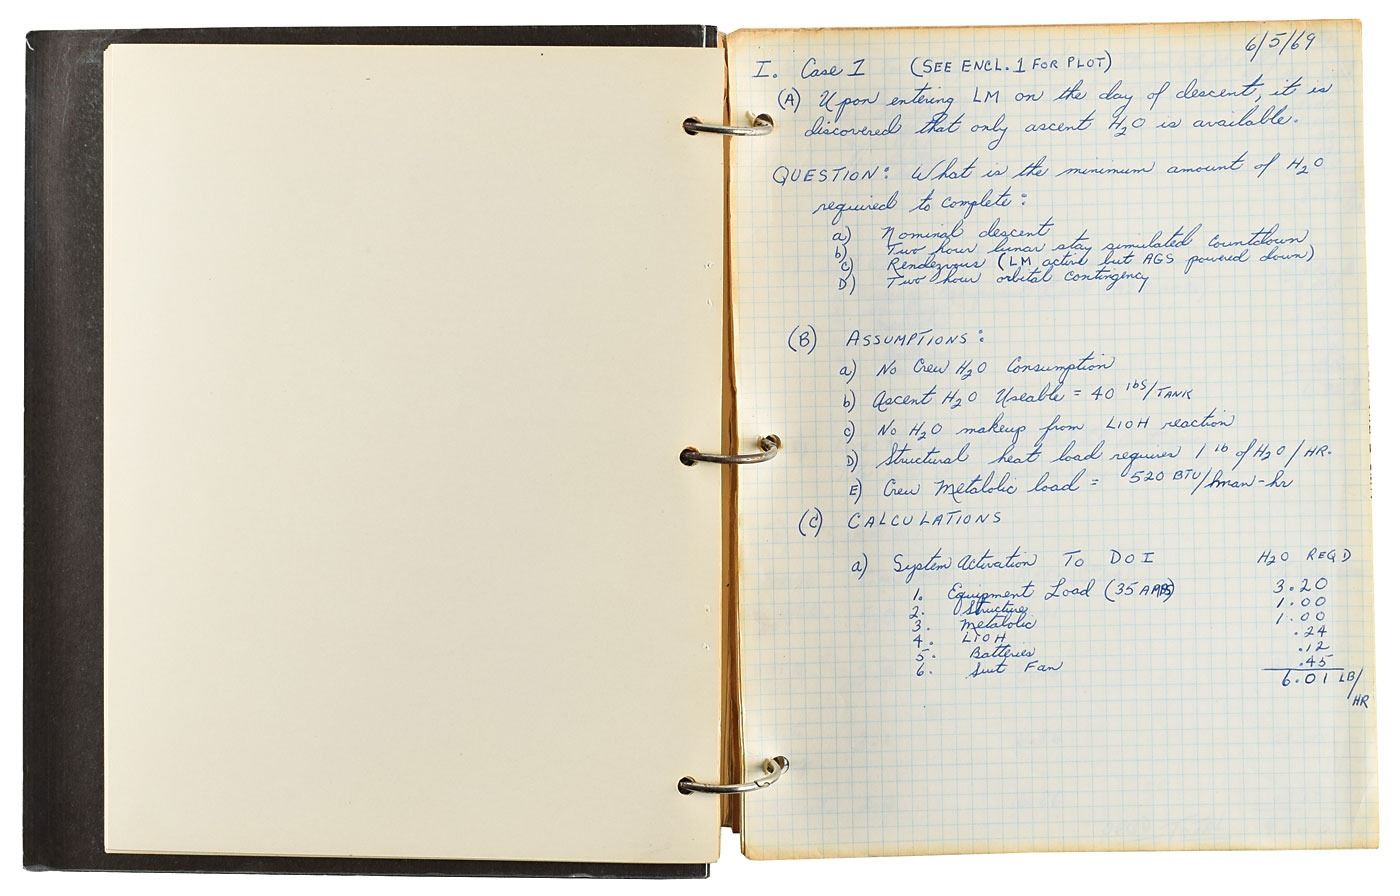 6/5/69
I. Case I (SEE ENCL. 1 FOR PLOT)
(A) Upon entering LM on the day of descent, it is
discovered that only ascent H2O is available.
QUESTION: What is the minimum amount of H2O
required to complete:
a) Nominal descent
b) Two hour lunar stay simulated countdown
c) Rendezvous (LM active but AGS powered down)
D) Two hour orbital contingency
(B) ASSUMPTIONS:
a) No Crew H2O Consumption
b) Ascent H2O Useable = 40 lbs/TANK
c) No H2O makeup from LIOH reaction
D) Structural heat load requires 1 lb of H2O/HR.
E) Crew Metabolic load = 520 BTU/man-hr
(C) CALCULATIONS
a) System Activation To DOI H2O REQD
1. Equipment Load (35 AMPS) 3.20
2. Structure 1.00
3. Metabolic 1.00
4. LIOH .24
5. Batteries .12
6. Suit Fan .45
6.01 LB/HR